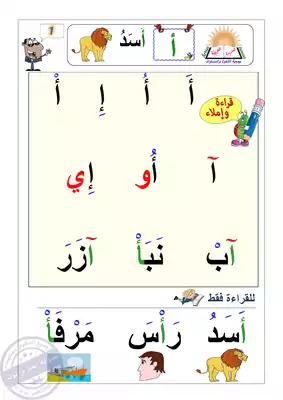 أَسَدُ أ 1
أَ أُ إِ أْ
قراءة
وإملاء
آ أُو إِي
آبْ نَبَأْ آزَرَ
للقراءة فقط
أَسَدُ رَأْسَ مَرْفَأْ